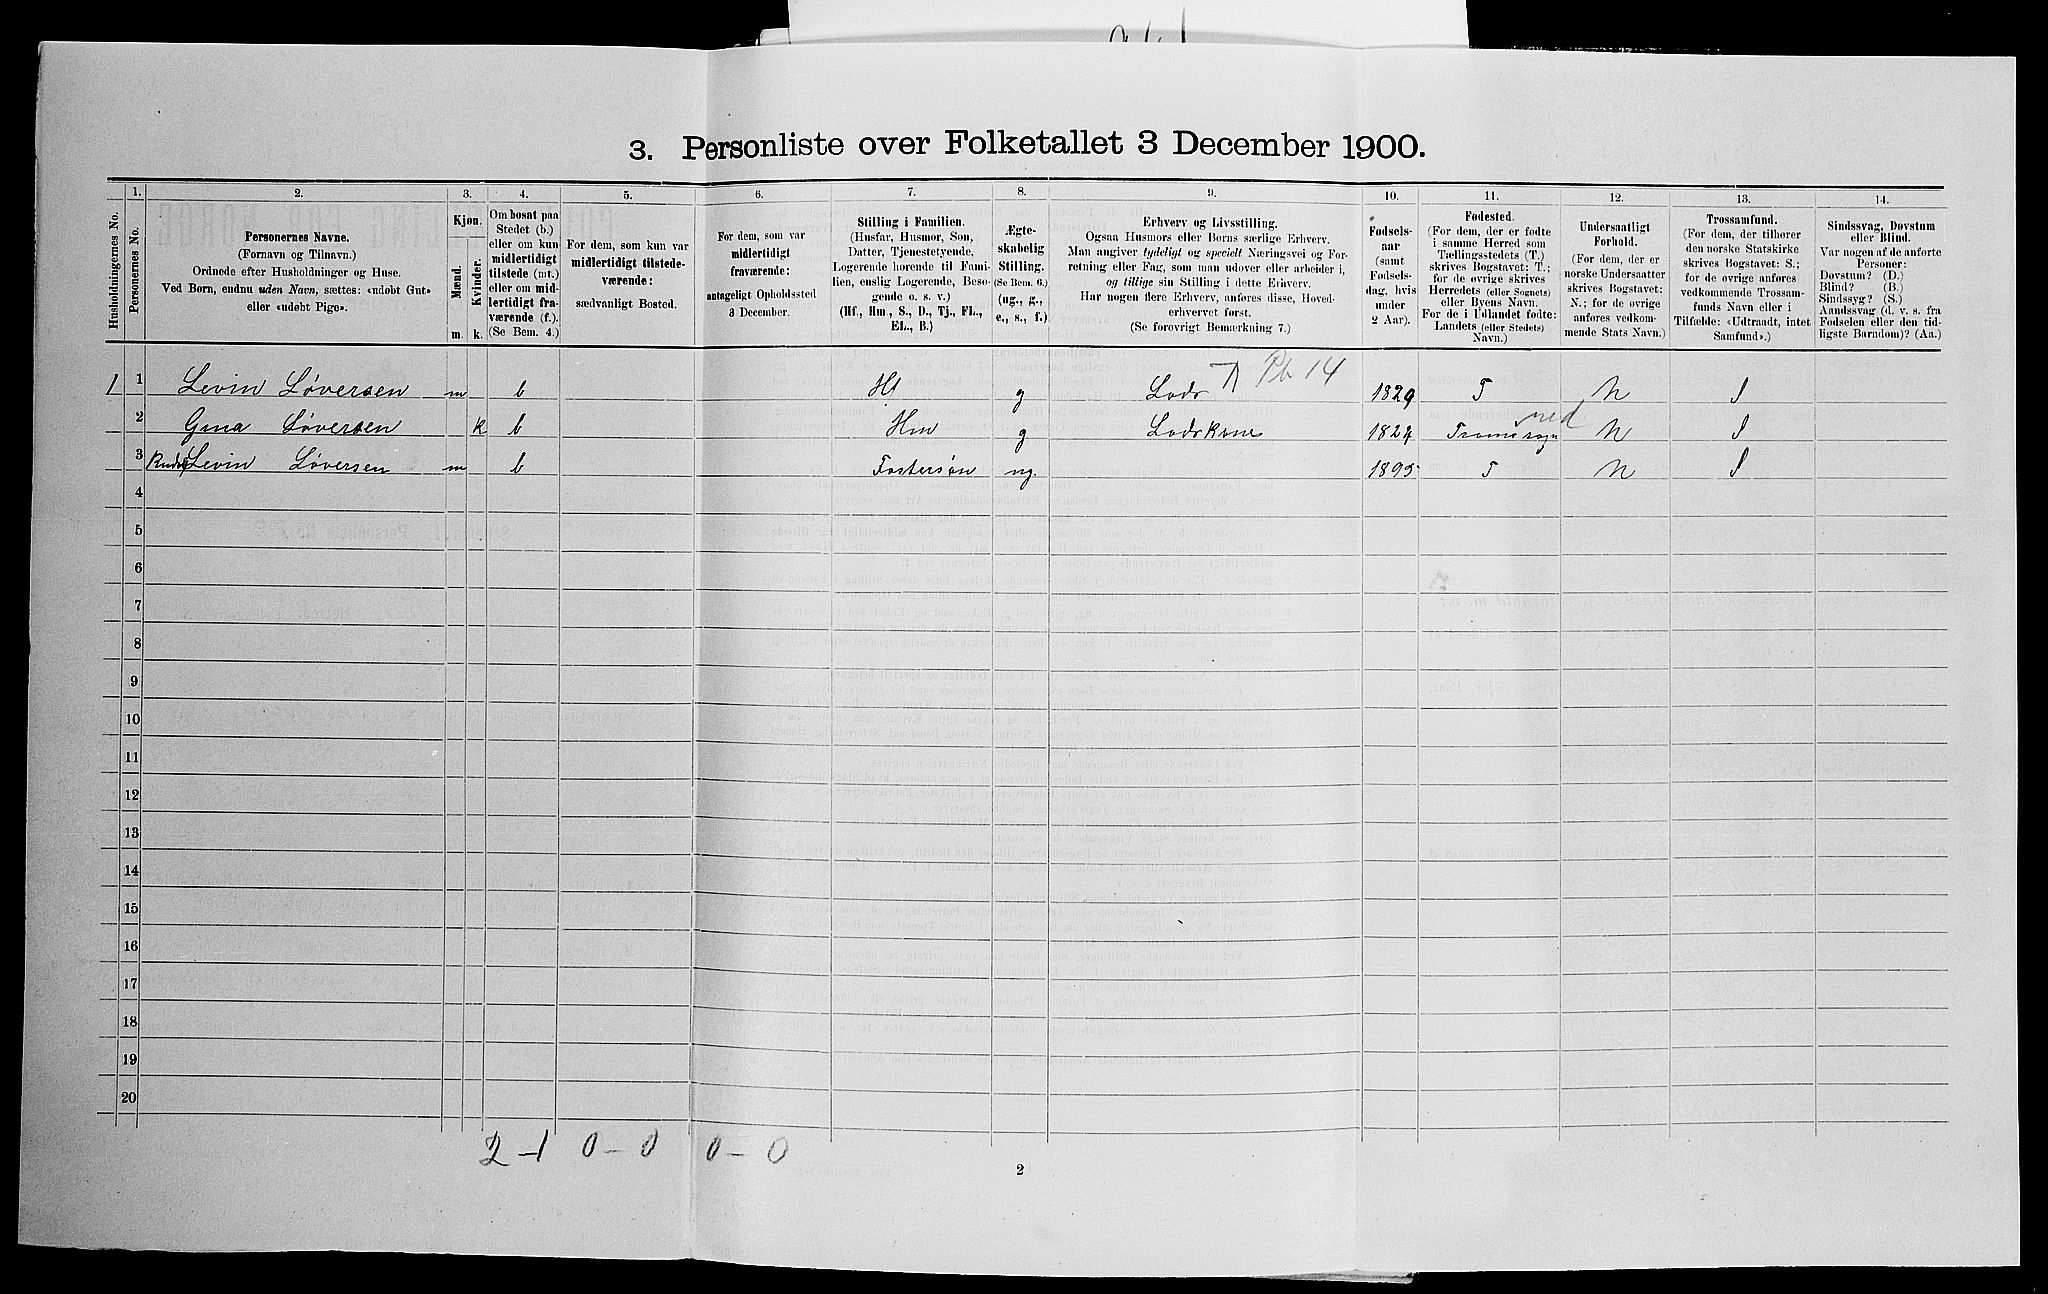 3. Personliste over Folketallet 3 December 1900.
Husholdningernes No.
1.
Personernes No.
2.
Personernes Navne.
(Fornavn og Tilnavn.)
Ordnede efter Husholdninger og Huse.
Ved Børn, endnu uden Navn, sættes: «udøbt Gut»
eller «udøbt Pige».
3.
Kjøn.
Mænd.
Kvinder.
m.
k.
4.
Om bosat paa
Stedet (b.)
eller om kun
midlertidigt
tilstede (mt.)
eller om mid-
lertidigt fra-
værende (f.).
(Se Bem. 4.)
5.
For dem, som kun var
midlertidigt tilstede-
værende:
sædvanligt Bosted.
6.
For dem, som var
midlertidigt
fraværende:
antageligt Opholdssted
3 December.
7.
Stilling i Familien.
(Husfar, Husmor, Søn,
Datter, Tjenestetyende,
Logerende hørende til Fami-
lien, enslig Logerende, Besø-
gende o. s. v.)
(Hf., Hm., S., D., Tj., FL.,
EL., B.)
8.
Ægte-
skabelig
Stilling.
(Se Bem. 6.)
(ug., g.,
e., s., f.)
9.
Erhverv og Livsstilling.
Ogsaa Husmors eller Børns særlige Erhverv.
Man angiver tydeligt og specielt Næringsvei og For-
retning eller Fag, som man udover eller arbeider i,
og tillige sin Stilling i dette Erhverv.
Har nogen flere Erhverv, anføres disse, Hoved-
erhvervet først.
(Se forøvrigt Bemærkning 7.)
10.
Fødsels-
aar
(samt
Fødsels-
dag, hvis
under
2 Aar).
11.
Fødested.
(For dem, der er fødte
i samme Herred som
Tællingsstedets (T.)
skrives Bogstavet: T.;
for de øvrige skrives
Herredets (eller Sognets)
eller Byens Navn.
For de i Udlandet fødte:
Landets (eller Stedets)
Navn.)
12.
Undersaatligt
Forhold.
(For dem, der er
norske Undersaatter
skrives Bogstavet:
N.; for de øvrige
anføres vedkom-
mende Stats Navn.)
13.
Trossamfund.
(For dem, der tilhører
den norske Statskirke
skrives Bogstavet: S.;
for de øvrige anføres
vedkommende Trossam-
funds Navn eller i
Tilfælde: «Udtraadt, intet
Samfund».)
14.
Sindssvag, Døvstum
eller Blind.
Var nogen af de anførte
Personer:
Døvstum? (D.)
Blind? (B.)
Sindssyg? (S.)
Aandssvag (d. v. s. fra
Fødselen eller den tid-
ligste Barndom)? (Aa.)
1 1 Levin Løversen m b Hf g Lods Pb 14 1829 T N S
2 Gina Løversen k b Hm g Lodskone 1824 N S
3 Levin Løversen m b Fostersøn ug. 1895 T N S
4
5
6
7
8
9
10
11
12
13
14
15
16
17
18
19
20
2-1 0-0 0-0
2